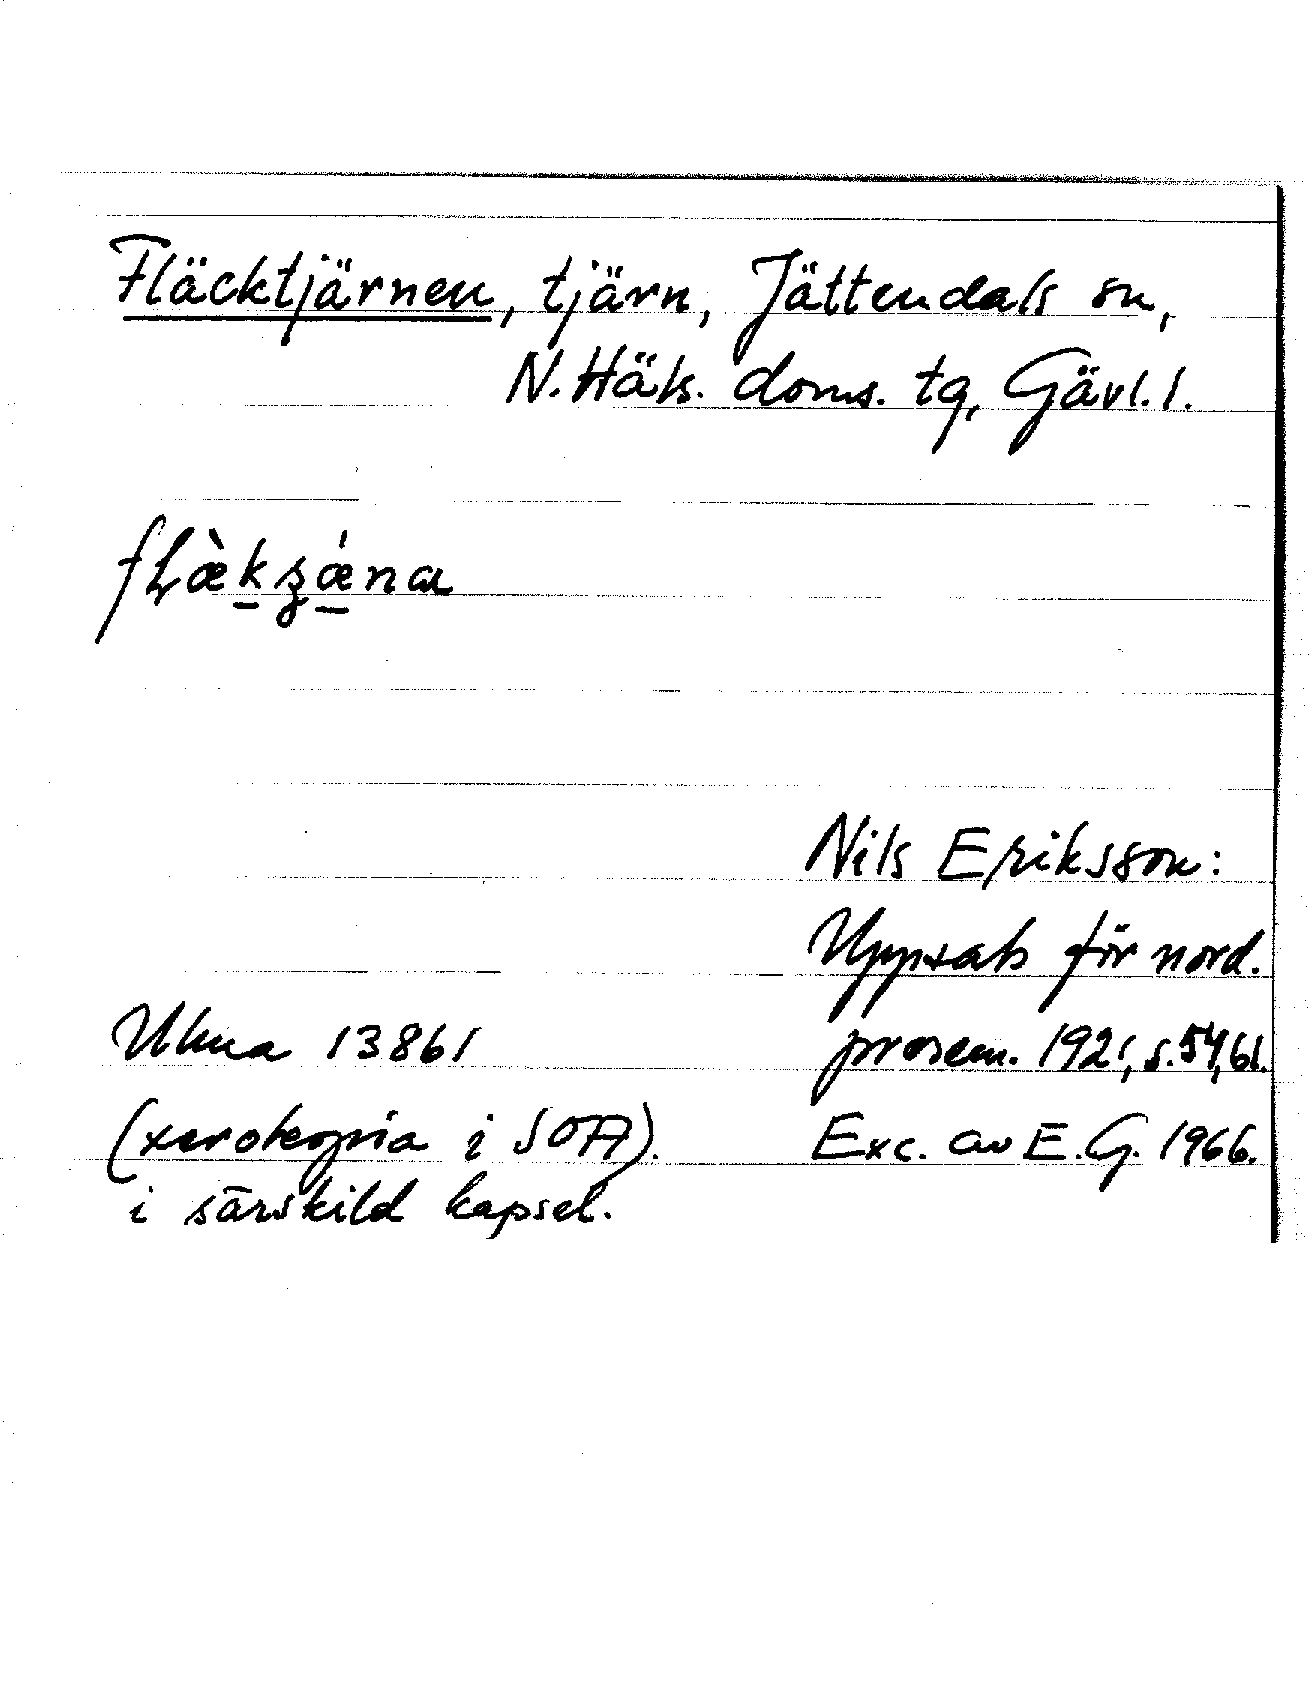 Fläcktjärnen, tjärn, Jättendals sn,
N. Häls. doms. tg, Gävl. l.
Nils Eriksson:
Uppsats för nord.
Ukua 13861
prosem. 1921, s. 54, 61.
(xerokopia i SOFA).
Exc. av E.G. 1966.
i särskild kapsel.